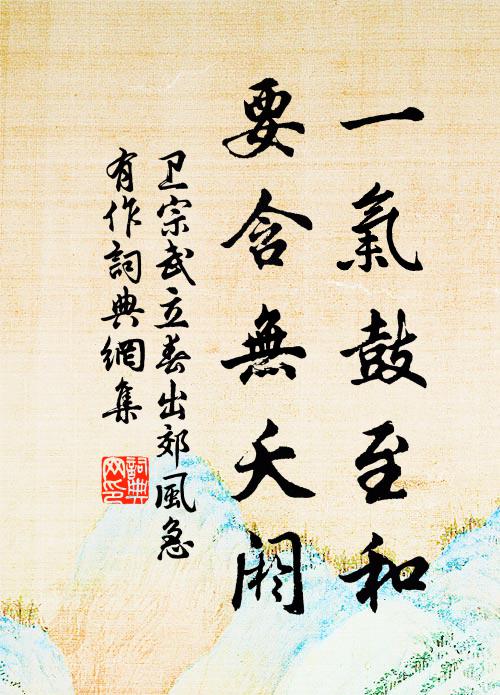 一氣鼓至和
要含無夭阏
卫宗武立春出郊風急
有作詞典網集
詞典